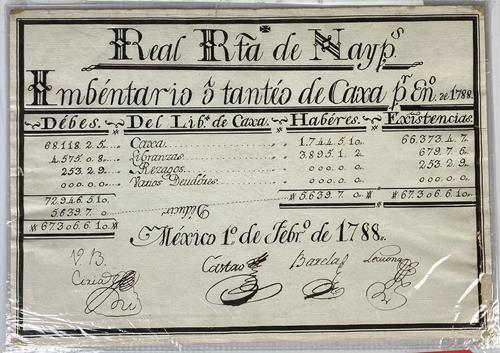 Real Rta de Nayps
Imbéntario ó tantéo de Caxa pr Eno. de 1788.
Débes. Del Libo. de Caxa. Habéres. Existencias.
68.118.2.5 Caxa 1.744.5.10. 66.373.4.7.
4.575.0.8 Libranzas 3.895.1.2. 679.7.6
253.2.9 Rezagos 000.0.0 253.2.9.
000.0.0 Varios Deudóres 000.0.0 000.0.0.
72.946.5.10. 5.639.7.0 67.306.6.10
5.639.7.0
67.306.6.10
México 1o. de Febro. de 1788.
Vo. Bo.
Castao Barela